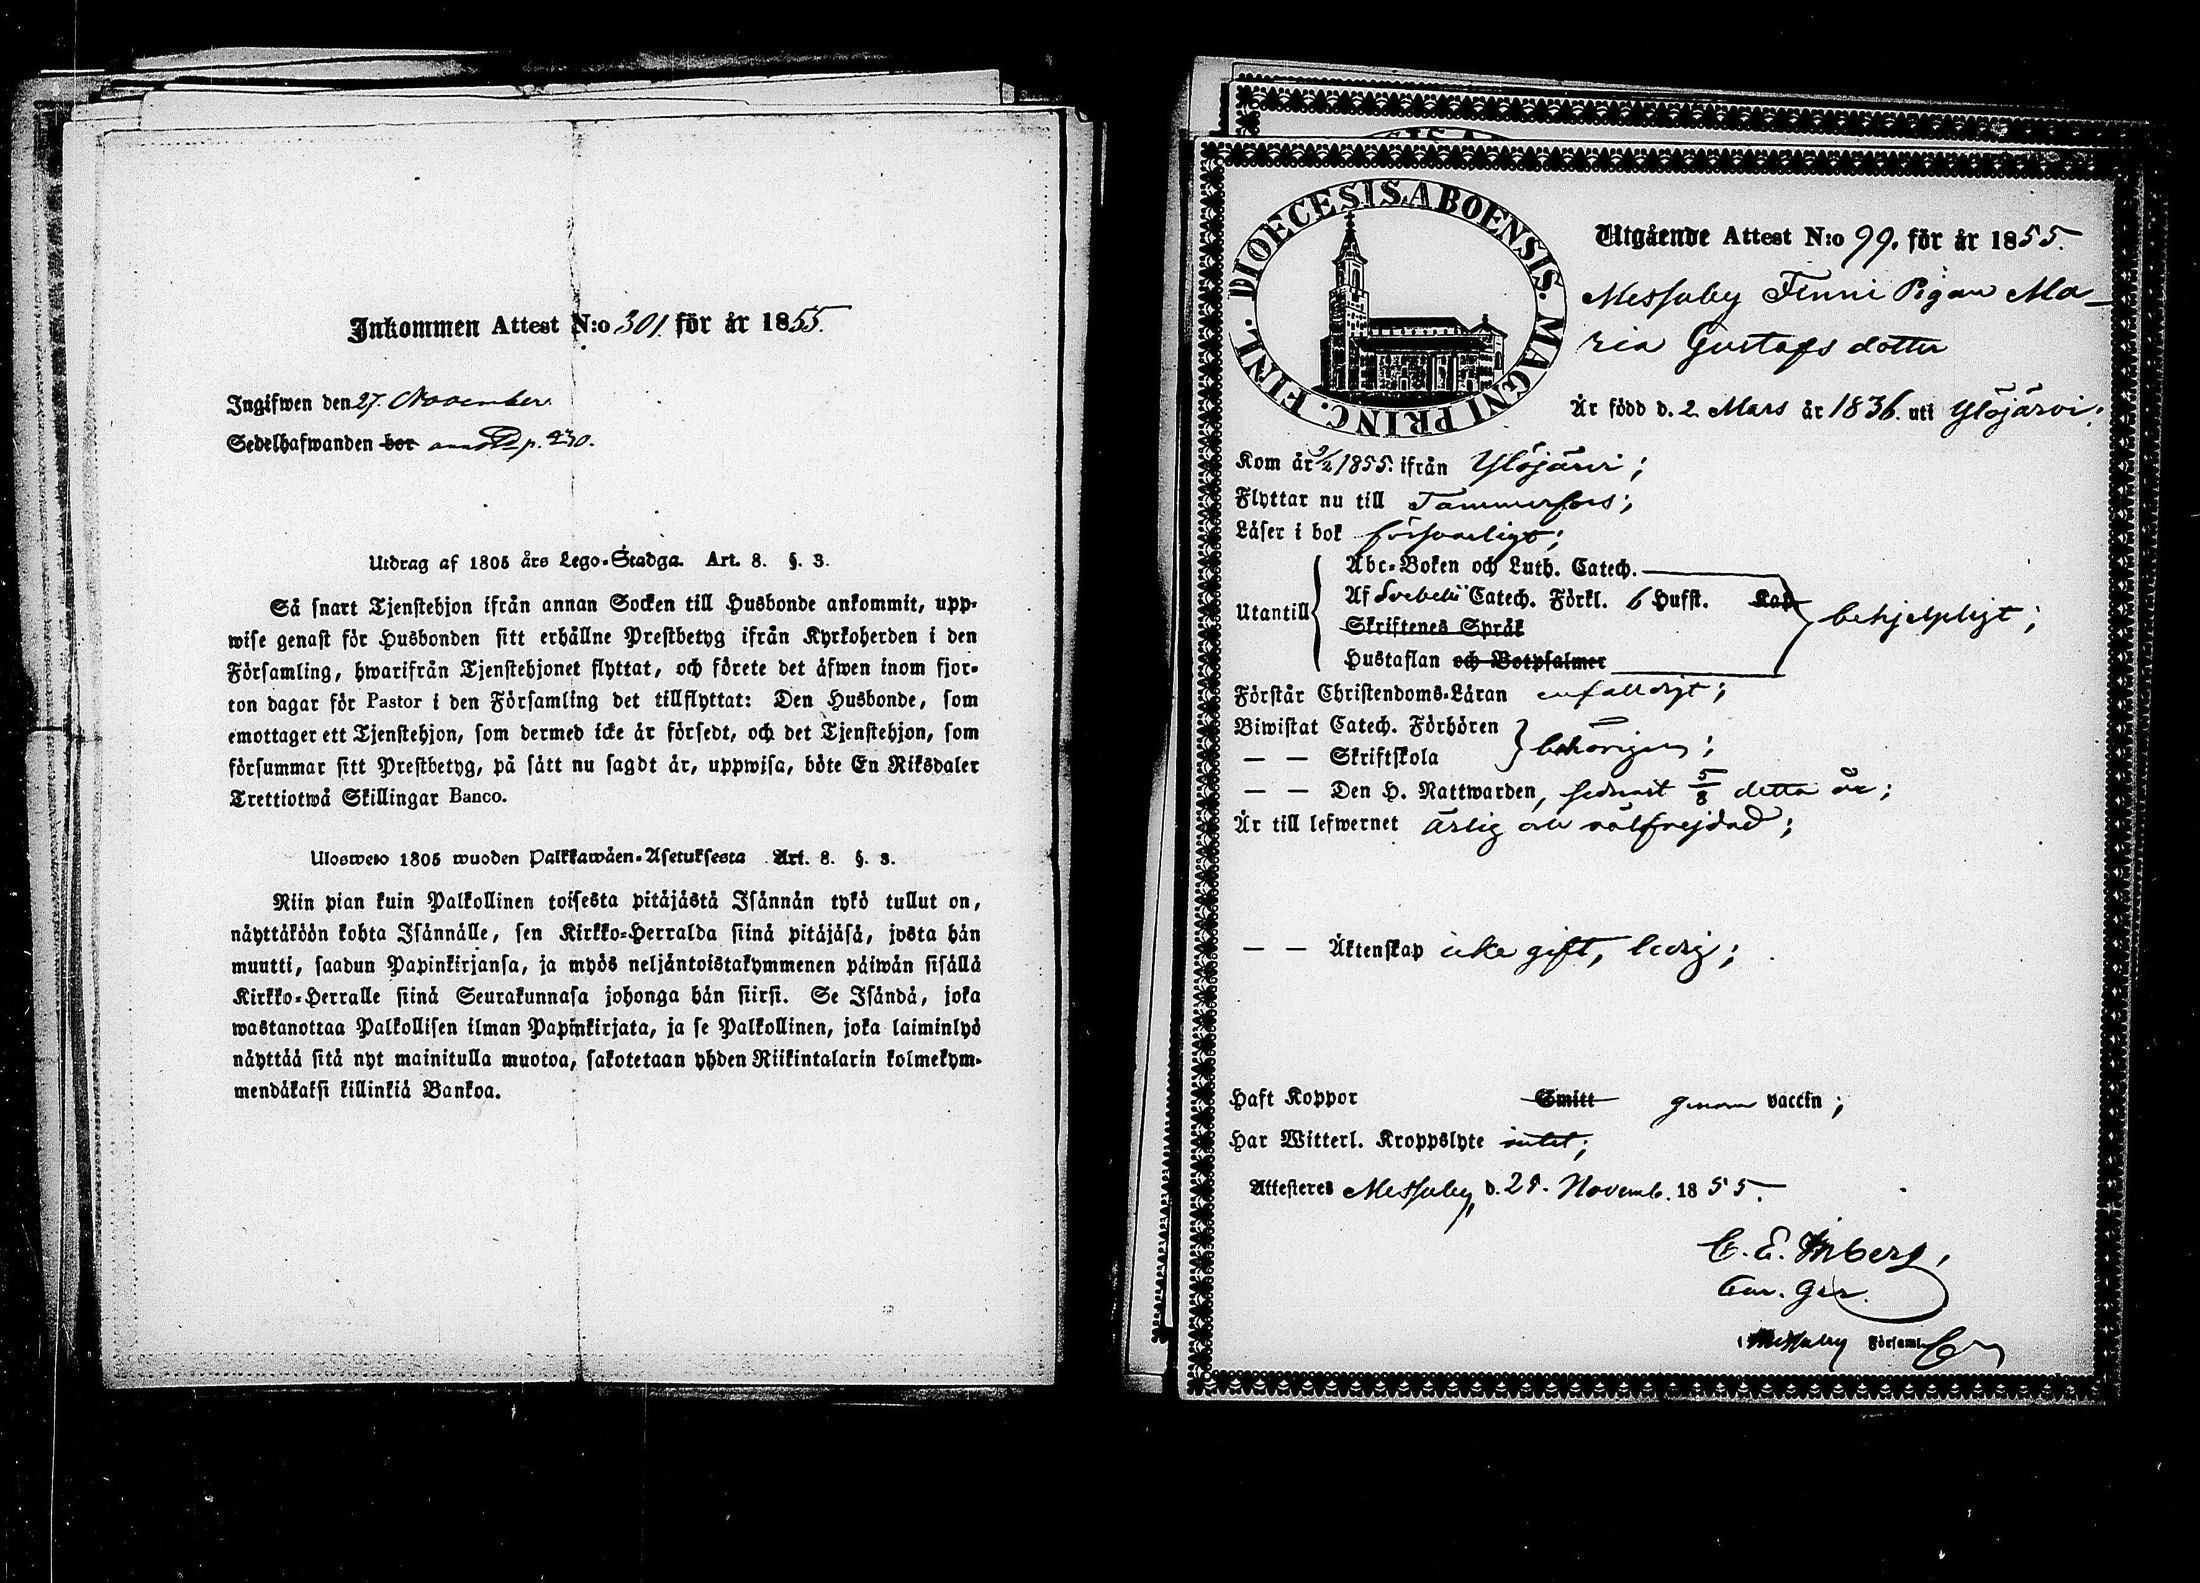 Inkommen Attest N:o 301. för år 1855.
Ingifwen den 27. November
Sedelhafwanden bor p. 230.
Utdrag af 1805 års Lego-Stadga. Art. 8. §. 3.
Så snart Tjenstehjon ifrån annan Socken till Husbonde ankommit, upp-
wise genast för Husbonden sitt erhållne Prestbetyg ifrån Kyrkoherden i den
Församling, hwarifrån Tjenstehjonet flyttat, och förete det äfwen inom fjor-
ton dagar för Pastor i den Församling det tillflyttat: Den Husbonde, som
emottager ett Tjenstehjon, som dermed icke är försedt, och det Tjenstehjon, som
försummar sitt Prestbetyg, på sätt nu sagdt är, uppwisa, böte En Riksdaler
Trettiotwå Skillingar Banco.
Ulosweto 1805 wuoden Palkkawäen-Asetuksesta Art. 8. §. 3.
Niin pian kuin Palkollinen toisesta pitäjästä Isännän tykö tullut on,
näyttäköön kohta Isännälle, sen Kirkko-Herralda siinä pitäjäsä, josta hän
muutti, saadun Papinkirjansa, ja myös neljäntoistakymmenen päiwän sisällä
Kirkko-Herralle siinä Seurakunnasa johonga hän siirsi. Se Isändä, joka
wastanottaa Palkollisen ilman Papinkirjata, ja se Palkollinen, joka laiminlyö
näyttää sitä nyt mainitulla muotoa, sakotetaan yhden Riikintalarin kolmekym-
mendäkaksi killinkiä Bankoa.
DIOECESIS ABOENSIS. MAGNI PRINC. FINL.
Utgående Attest N:o 99. för år 1855.
Messuby Finni Pigan Ma-
ria Gustafs dotter
Är född d. 2 Mars år 1836. uti Ylöjärvi;
Kom år 9/2 1855. ifrån Ylöjärvi;
Flyttar nu till Tammerfors;
Läser i bok försvarligt;
Utantill
Abc-Boken och Luth. Catech.
Af Svebelii Catech. Förkl. 6 Hufst. Kap
Skriftenes Språk
behjelpligt;
Hustaflan och Botpsalmer
Förstår Christendoms-Läran enfaldigt;
Biwistat Catech. Förhören
— — Skriftskola
behörigen;
— — Den H. Nattwarden, sednast 5/8 detta år;
Är till lefwernet ärlig och välfrejdad;
— — Äktenskap icke gift, ledig;
Haft Koppor Smitt genom vaccin;
Har Witterl. Kroppslyte intet;
Attesteres Messuby, d. 28. Novemb. 1855.
C. E.
i Messuby Församl.